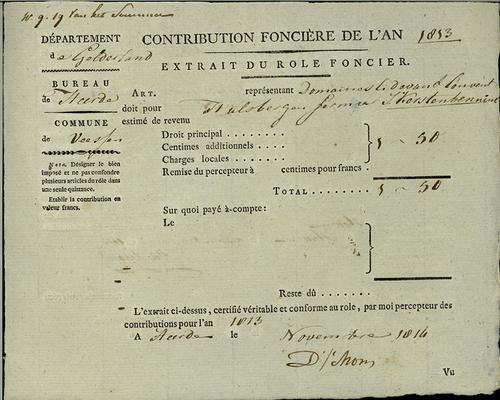 CONTRIBUTION FONCIÈRE DE L'AN 1813
EXTRAIT DU ROLE FONCIER.
DÉPARTEMENT
de Gelderland
BUREAU
de Heerde
COMMUNE
de Veessen
Nota. Désigner le bien
imposé et ne pas confondre
plusieurs articles du rôle dans
une seule quittance.
Etablir la contribution en
valeur francs.
ART. représentant Domaines
doit pour
estimé de revenu
Droit principal
Centimes additionnels
Charges locales
5 ~ 50
Remise du percepteur à centimes pour francs.
TOTAL 5 ~ 50
Sur quoi payé à-compte:
Le
Reste dû
L'extrait ci-dessus, certifié véritable et conforme au role, par moi percepteur des
contributions pour l'an 1813
A Heerde le Novembre 1814
Vu